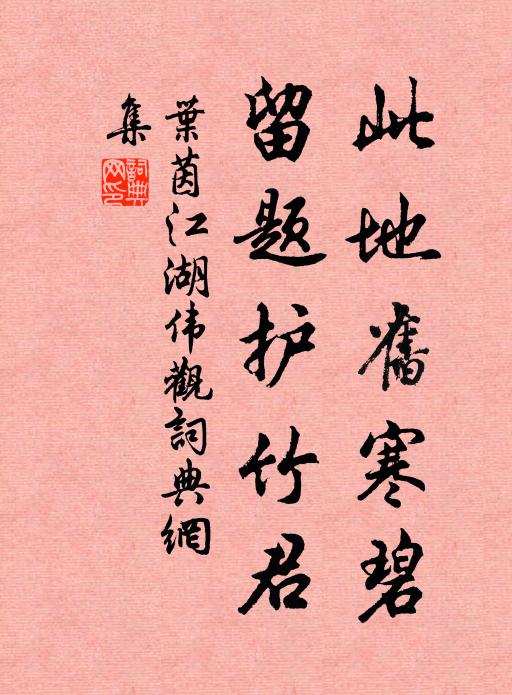 此地舊寒碧
留题护竹君
葉茵江湖伟觀詞典網
集
詞典網印